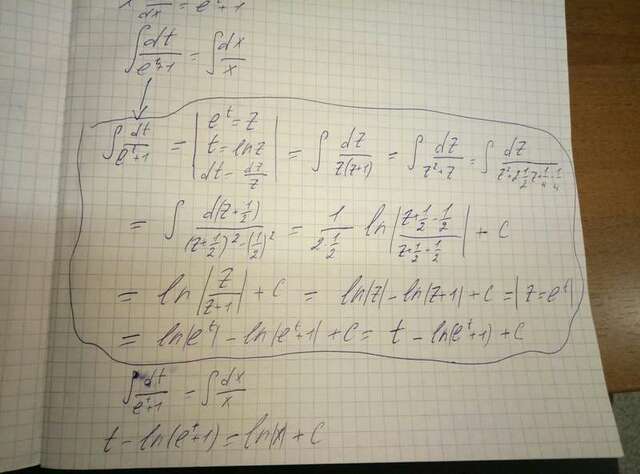 x dt/dx = e^t+1
∫ dt/(e^t+1) = ∫ dx/x
∫ dt/(e^t+1) = | e^t = z, t = ln z, dt = dz/z | = ∫ dz/(z(z+1)) = ∫ dz/(z²+z) = ∫ dz/(z²+2·1/2 z+1/4-1/4)
= ∫ d(z+1/2)/((z+1/2)²-(1/2)²) = 1/(2·1/2) ln|(z+1/2-1/2)/(z+1/2+1/2)| + C
= ln|z/(z+1)| + C = ln|z| - ln|z+1| + C = |z=e^t|
= ln|e^t| - ln|e^t+1| + C = t - ln(e^t+1) + C
∫ dt/(e^t+1) = ∫ dx/x
t - ln(e^t+1) = ln|x| + C